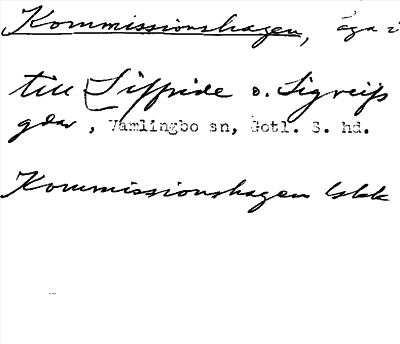 Kommissionshagen, äga i
till Siffride o. Sigreifs
gdar, Vamlingbo sn, Gotl. S. hd.
Kommissionshagen Lskk